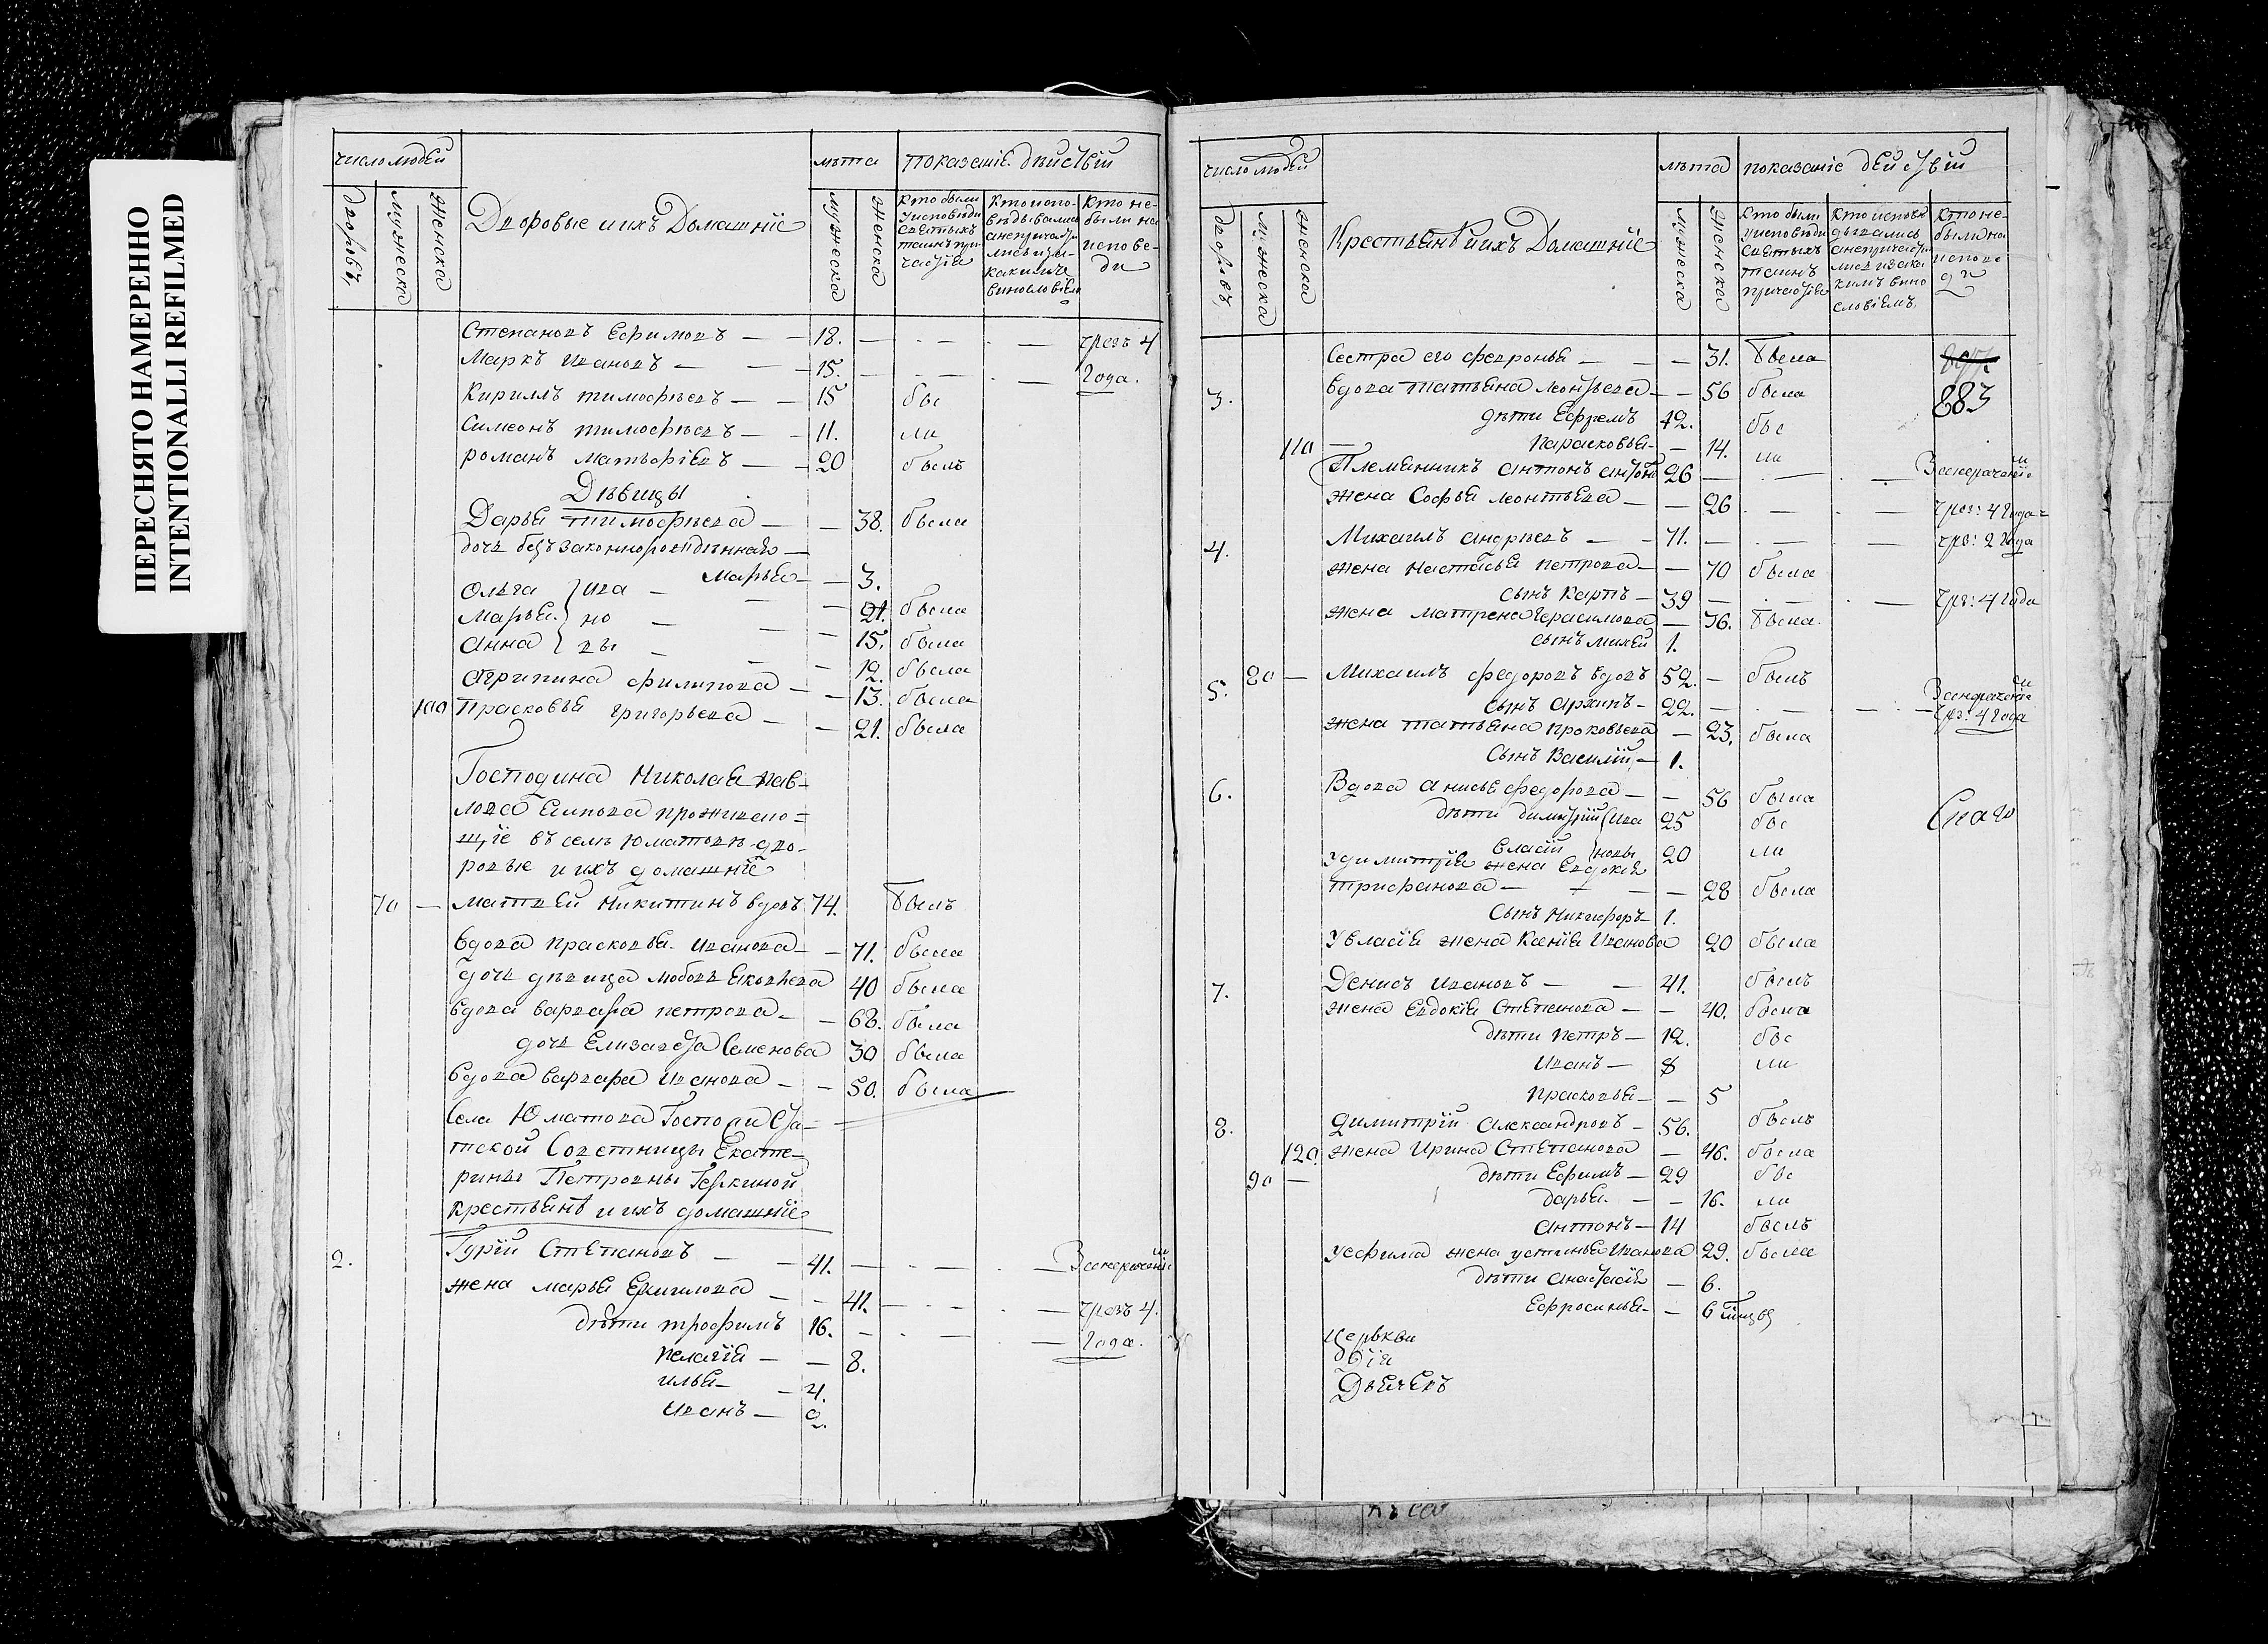 ПЕРЕСНЯТО НАМЕРЕННО
INTENTIONALLI REFILMED
число людей
лѣта
показаніе дѣйствій
дворовъ
мужеска
женска
Дворовые и ихъ Домашніе
мужеска
женска
кто были
у исповѣди
святыхъ
таинъ при
частія
кто испо-
вѣдывались
а не причасти
лись и за
какимъ
винословіем
кто не-
были на
испове-
ди
Степановъ Ефимовъ — — 18. — чрезъ 4
Маркъ Ивановъ — — 15. — года.
Кириллъ тимофѣевъ — — 15 бы
Симеонъ тимофѣевъ — — 11. ли
романъ матвѣевъ — — 20 былъ
Дѣвицы
Дарья тимофѣева — — 38. была
дочь беззаконнорожденная —
Марья — — 3.
Ольга } ива — — 21. была
Марья } но — — 15. была
Анна } вы — — 12. была
Агрипина филипова — — 13. была
100 Прасковья григорьева — — 21. была
Господина Николая Пав-
лова проживаю=
щіе въ селѣ Юматовѣ дво-
ровые и ихъ домашніе
70 — матвей Никитинъ вдовъ 74. былъ
вдова прасковья Иванова — — 71. была
дочь дѣвица любовь Яковлева 40 была
вдова варвара петрова — — 68. была
дочь Елизавета Семенова 30 была
вдова варвара Иванова — — 50. была
Села Юматова Госпожи Ста-
тской Советницы Екате-
рины Петровны
крестьянѣ и ихъ домашніе
2. Гурій Степановъ — — 41. —
жена марья — — 41. — чрезъ 4.
дѣти трофимъ 16. — года.
пелагія — — 8.
илья — — 4.
Иванъ — 2.
число людей
лѣта
показаніе дѣйствій
дворовъ
мужеска
женска
Крестьянѣ и ихъ Домашніе
мужеска
женска
кто были
у исповѣди
святыхъ
таинъ
причастія
кто исповѣ
дывались
а не причасти
лись и за ка
кимъ вино
словіемъ
кто не-
были на
испове
ди
Сестра его февронья — — — 31. была
883
3. вдова татьяна леонтьева — — 56 была
дѣти Ефремъ 12. бы
110 — Парасковья — — 14. ли
Племянникъ антонъ 26 —
жена Софья леонтьева — — 26 чрез: 4 года
4. Михаилъ андреевъ — — 71. — чрз: 2 года
жена настасья петрова — — 70 была
сынъ карпъ — 39 — чрз: 4 года
жена матрена герасимова — 36. была.
сынъ михей 1.
5. 80 — Михаилъ федоровъ вдовъ 52. — былъ
сынъ архипъ — 22. — чрз: 4 года
жена татьяна прокофьева — 23. была
Сынъ Василій — 1.
6. Вдова анисья федорова — — 56 была
дѣти димитрій } Ива 25 бы
власій } новы 20 ли
У димитрія жена Евдокия
трифанова — — — 28 была
Сынъ Никифоръ — 1.
У власія жена Ксенія Иванова 20 была
7. Денисъ Ивановъ — — 41. былъ
жена Евдокія Степанова — — 40. была
дѣти петръ — 12. бы
Иванъ — 8 ли
прасковья — — 5
8. Димитрій Александровъ — 56. былъ
120. жена Ирина Степанова — 46. была
90 — дѣти Ефимъ — 29 бы
дарья — — 16. ли
антонъ — 14 былъ
у ефима жена устинья Иванова 29. была
дѣти анастасія — 6.
Ефросинья — — 6
церкви
Дьячекъ